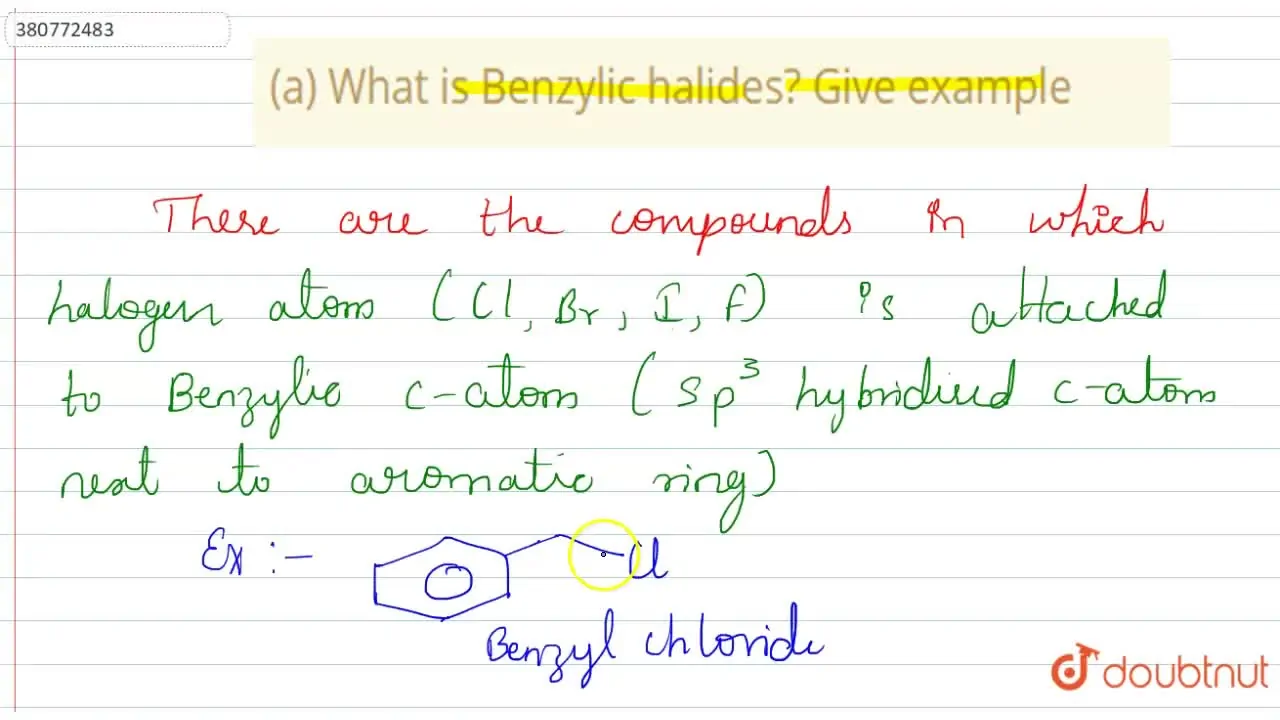 380772483
(a) What is Benzylic halides? Give example
These are the compounds in which
halogen atom (Cl, Br, I, F) is attached
to Benzylic c-atom (sp³ hybridised c-atom
next to aromatic ring)
Ex :-
Cl
Benzyl chloride
doubtnut